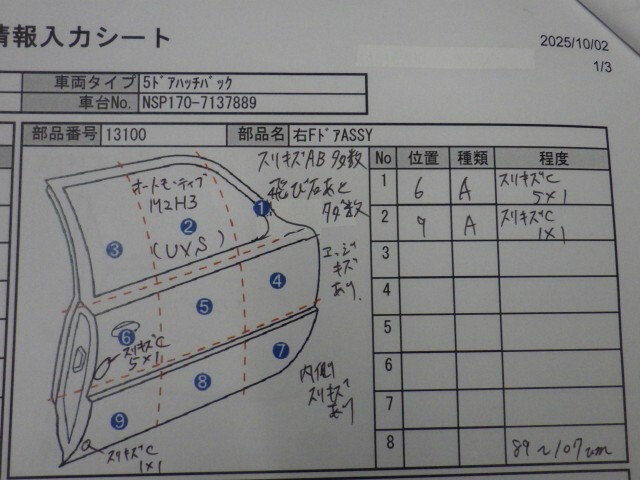 情報入力シート
2025/10/02
1/3
車両タイプ 5ドアハッチバック
車台No. NSP170-7137889
部品番号 13100 部品名 右FドアASSY
スリキズAB多数
飛び石あと
多数
オートモーティブ
M2H3
(UVS)
エッジ
キズ
あり
スリキズC
5×1
内側
スリキズ
あり
スリキズC
1×1
1
2
3
4
5
6
7
8
9
No 位置 種類 程度
1 6 A スリキズC 5×1
2 9 A スリキズC 1×1
3
4
5
6
7
8 89~107μm